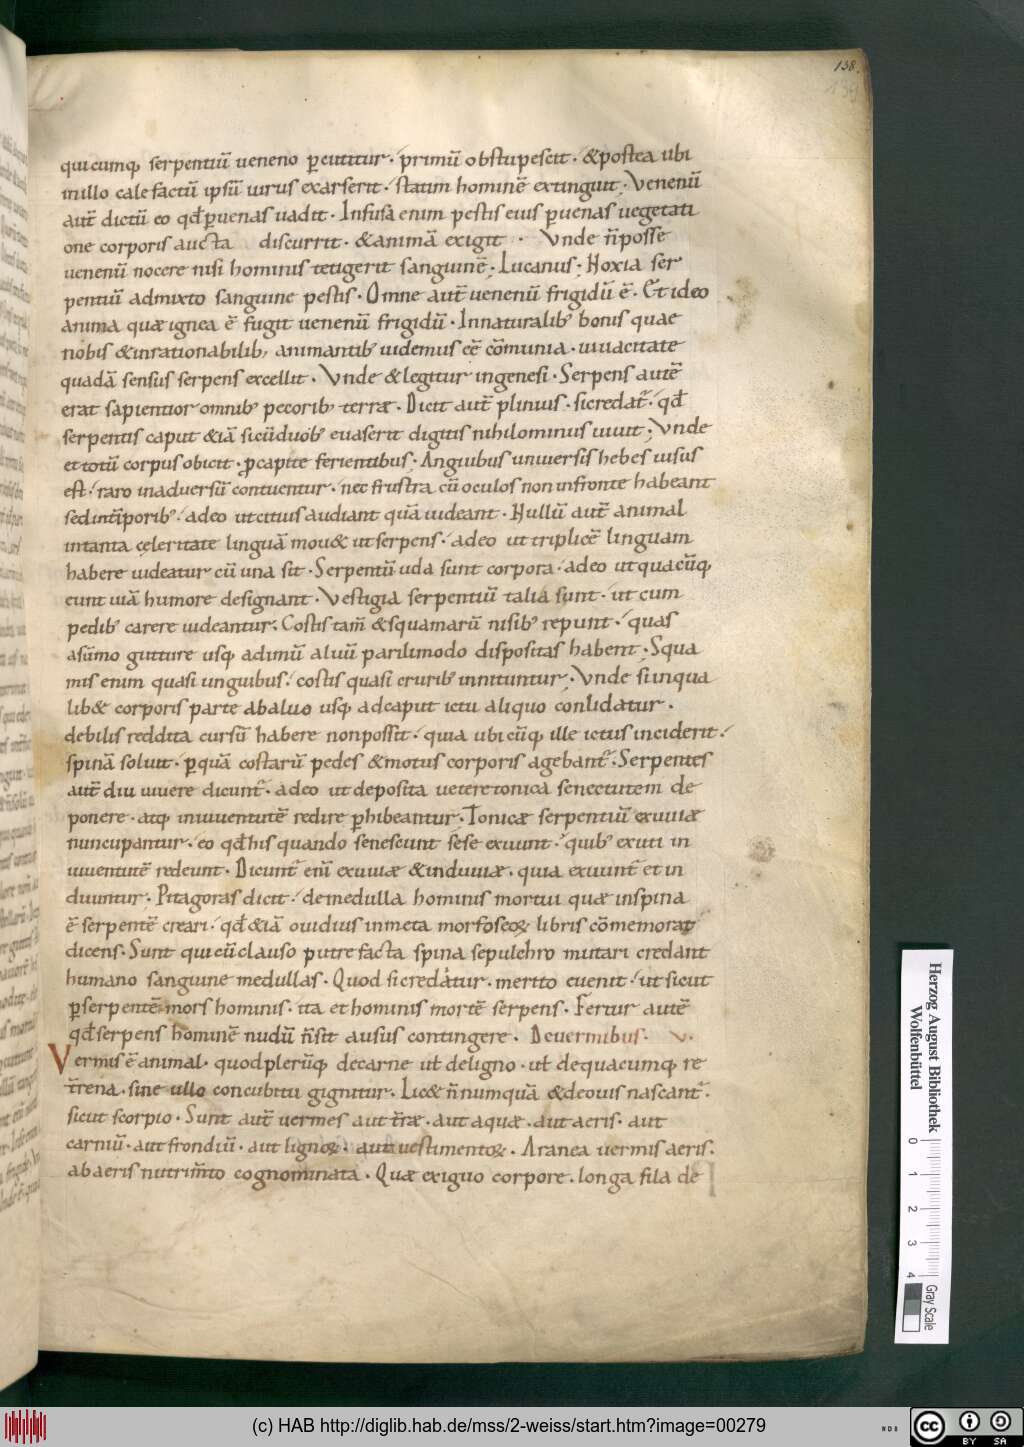 138
139
quicumq; serpentiũ ueneno ꝑcutitur · primũ obstupescit · &postea ubi
inillo calefactũ ipsũ uirus exarserit · statim hominẽ extinguit ; Venenũ
aut̃ dictũ eo qđ ꝑuenas uadit · Infusa enim pestis eius ꝑuenas uegetati
one corporis aucta discurrit · &animã exigit · Vnde ñposse
uenenũ nocere nisi hominis tetigerit sanguinẽ ; Lucanus ; Noxia ser
pentiũ admixto sanguine pestis · Omne aut̃ uenenũ frigidũ ẽ · Et ideo
anima quæ ignea ẽ fugit uenenũ frigidũ · Innaturalib; bonis quae
nobis &inrationabilib; animantib; uidemus eẽ cõmunia · uiuacitate
quadã sensus serpens excellit · Vnde &legitur ingenesi · Serpens autẽ
erat sapientior omnib; pecorib; terræ · Dicit aut̃ plinius · sicredat̃ · qđ
serpentis caput &iã sicũduob; euaserit digitis nihilominus uiuit ; Vnde
et totũ corpus obicit · ꝓcapite ferientibus ; Anguibus uniuersis hebes uisus
est · raro inaduersũ contuentur · nec frustra cũ oculos non infronte habeant
sed intẽporib; · adeo ut citius audiant quã uideant · Nullũ aut̃ animal
intanta celeritate linguã mou& ut serpens · adeo ut triplicẽ linguam
habere uideatur cũ una sit · Serpentũ uda sunt corpora · adeo ut quacũq;
eunt uiã humore designant · Vestigia serpentiũ talia sunt · ut cum
pedib; carere uideantur ; Costis tam̃ &squamarũ nisib; repunt · quas
asũmo gutture usq; adimũ aluũ parilimodo dispositas habent ; Squa
mis enim quasi unguibus · costis quasi cruribꝰ innituntur ; Vnde si inqua
lib& corporis parte abaluo usq; adcaput ictu aliquo conlidatur ·
debilis reddita cursũ habere nonpossit · quia ubicũq; ille ictus inciderit ·
spinã soluit · ꝑquã costarũ pedes &motus corporis agebant̃ · Serpentes
aut̃ diu uiuere dicunt̃ · adeo ut deposita uetere tonica senectutem de
ponere · atq; iniuuentutẽ redire ꝑhibeantur · Tonicæ serpentiũ exuuiæ
nuncupantur · eo qđ his quando senescunt sese exuunt · quib; exuti in
iuuentutẽ redeunt · Dicunt̃ eni̅ exuuiæ &induuiæ · quia exuunt̃ et in
duuntur · Pitagoras dicit · demedulla hominis mortui quæ inspina
ẽ serpentẽ creari · qđ &iã ouidius inmeta morfoseoꝝ libris cõmemorat
dicens · Sunt qui cũ clauso putrefacta spina sepulchro mutari credant
humano sanguine medullas · Quod si credatur · merito euenit · ut sicut
ꝑserpentẽ mors hominis · ita et hominis mortẽ serpens · Fertur autẽ
qđ serpens hominẽ nudũ ñsit ausus contingere · Deuermibus · V ·
Vermis ẽ animal · quod plerũq; decarne ut̃ deligno · ut̃ dequacumq; re
t̃rena · sine ullo concubitu gignitur · Lic& ñnumquã &deouis nascant̃ ·
sicut scorpio · Sunt aut̃ uermes aut t̃ræ · aut aquæ · aut aeris · aut
carniũ · aut frondiũ · aut lignoꝝ · aut uestimentoꝝ · Aranea uermis aeris ·
ab aeris nutrim̃to cognominata · Quæ exiguo corpore · longa fila de
Herzog August Bibliothek
Wolfenbüttel
0 1 2 3 4
Gray Scale
(c) HAB http://diglib.hab.de/mss/2-weiss/start.htm?image=00279
NDB
cc BY SA